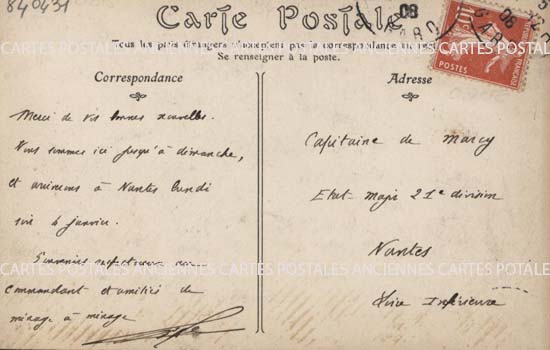 840431
Carte Postale
Tous les pays étrangers n'acceptent pas la correspondance au recto
Se renseigner à la poste.
Correspondance
Merci de vos bonnes nouvelles.
Nous sommes ici jusqu'à dimanche,
et arriverons à Nantes lundi
soir 6 janvier.
Souvenirs respectueux
commandant et amitiés de
ménage à ménage
Adresse
Capitaine de Marcy
Etat-major 21e division
Nantes
Loire Inférieure
08
POSTES
10
CARTES POSTALES ANCIENNES CARTES POSTALES ANCIENNES CARTES POTALES